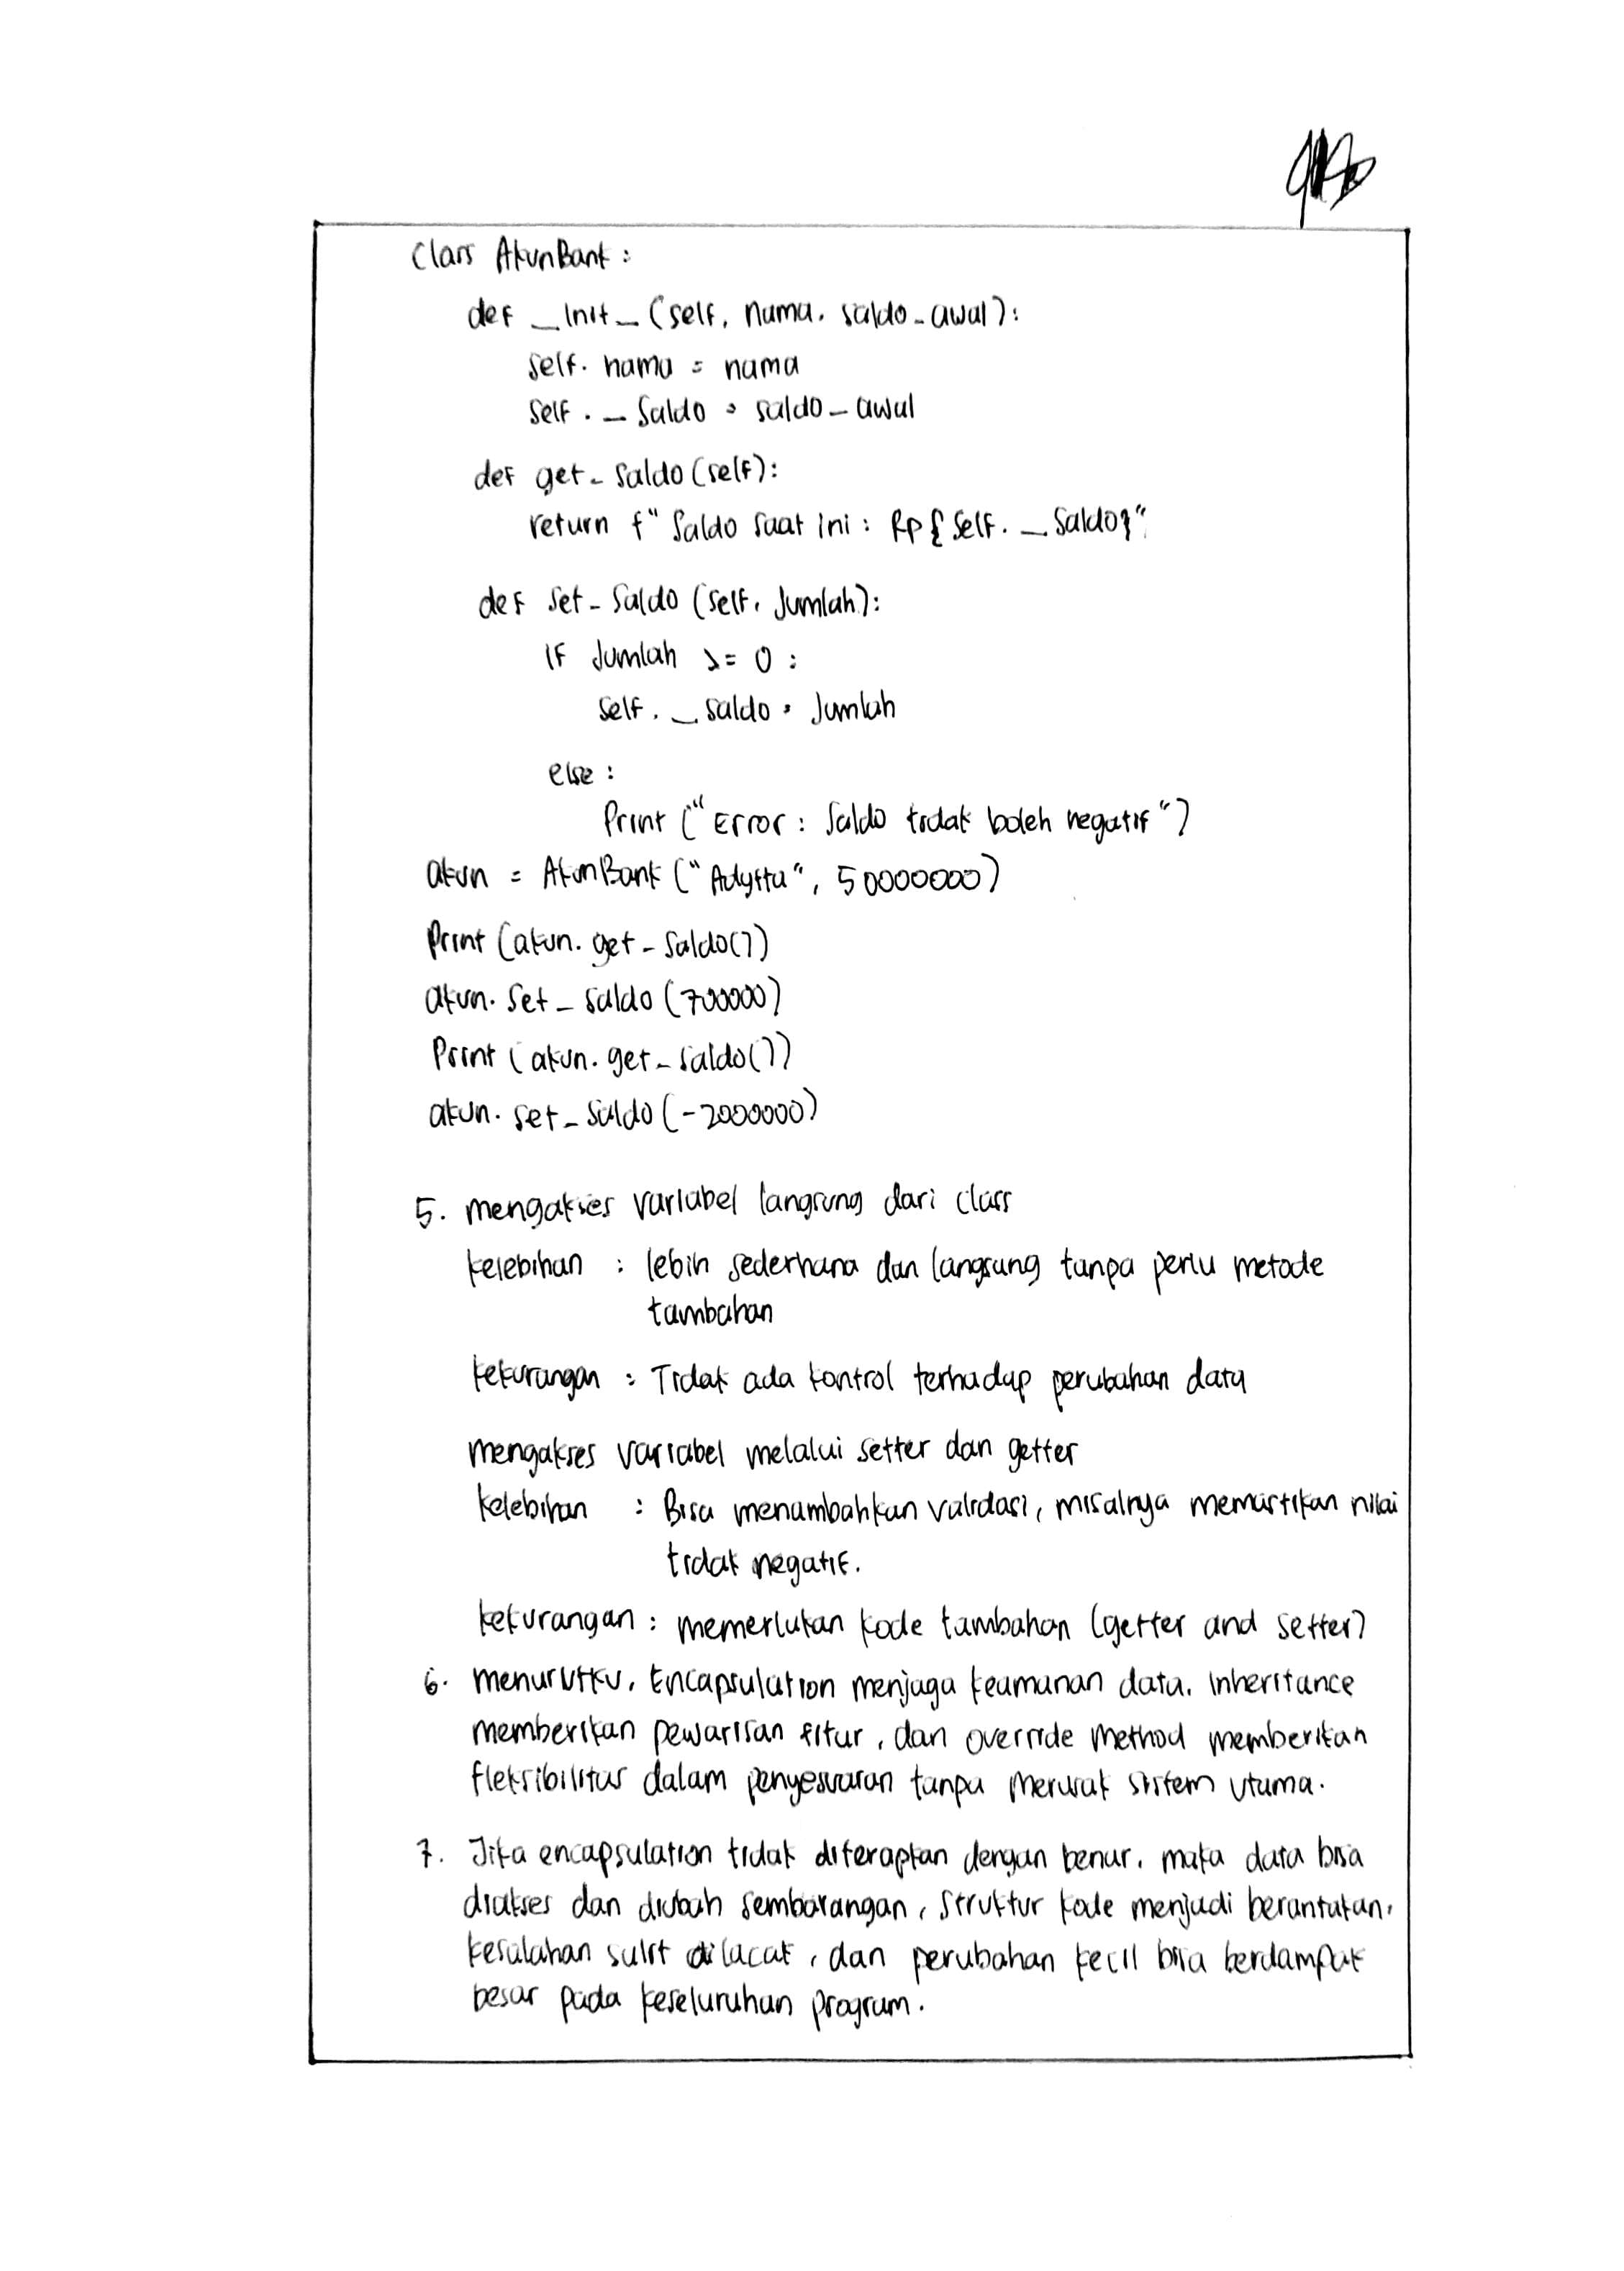 Class AkunBank :
def __init__ (self, nama, saldo_awal):
self. nama = nama
self . __ Saldo = saldo_awal
def get_saldo (self):
return f" Saldo saat ini : Rp{self. __ Saldo}"
def set_saldo (self, Jumlah):
if Jumlah >= 0 :
self . __ saldo = Jumlah
else :
Print ("Error : Saldo tidak boleh negatif")
akun = AkunBank ("Adytta", 50000000)
Print (akun. get_saldo())
akun. set_saldo (700000)
Print (akun. get_saldo())
akun. set_saldo (-2000000)
5. mengakses variabel langsung dari class
kelebihan : lebih sederhana dan langsung tanpa perlu metode
tambahan
kekurangan : Tidak ada kontrol terhadap perubahan data
mengakses variabel melalui setter dan getter
Kelebihan : Bisa menambahkan validasi, misalnya memastikan nilai
tidak negatif.
kekurangan : memerlukan kode tambahan (getter and setter)
6. menurutku, Encapsulation menjaga keamanan data, Inheritance
memberikan pewarisan fitur, dan override method memberikan
fleksibilitas dalam penyesuaian tanpa merusak sistem utama.
7. Jika encapsulation tidak diterapkan dengan benar, maka data bisa
diakses dan diubah sembarangan, struktur kode menjadi berantakan,
kesalahan sulit dilacak, dan perubahan kecil bisa berdampak
besar pada keseluruhan program.